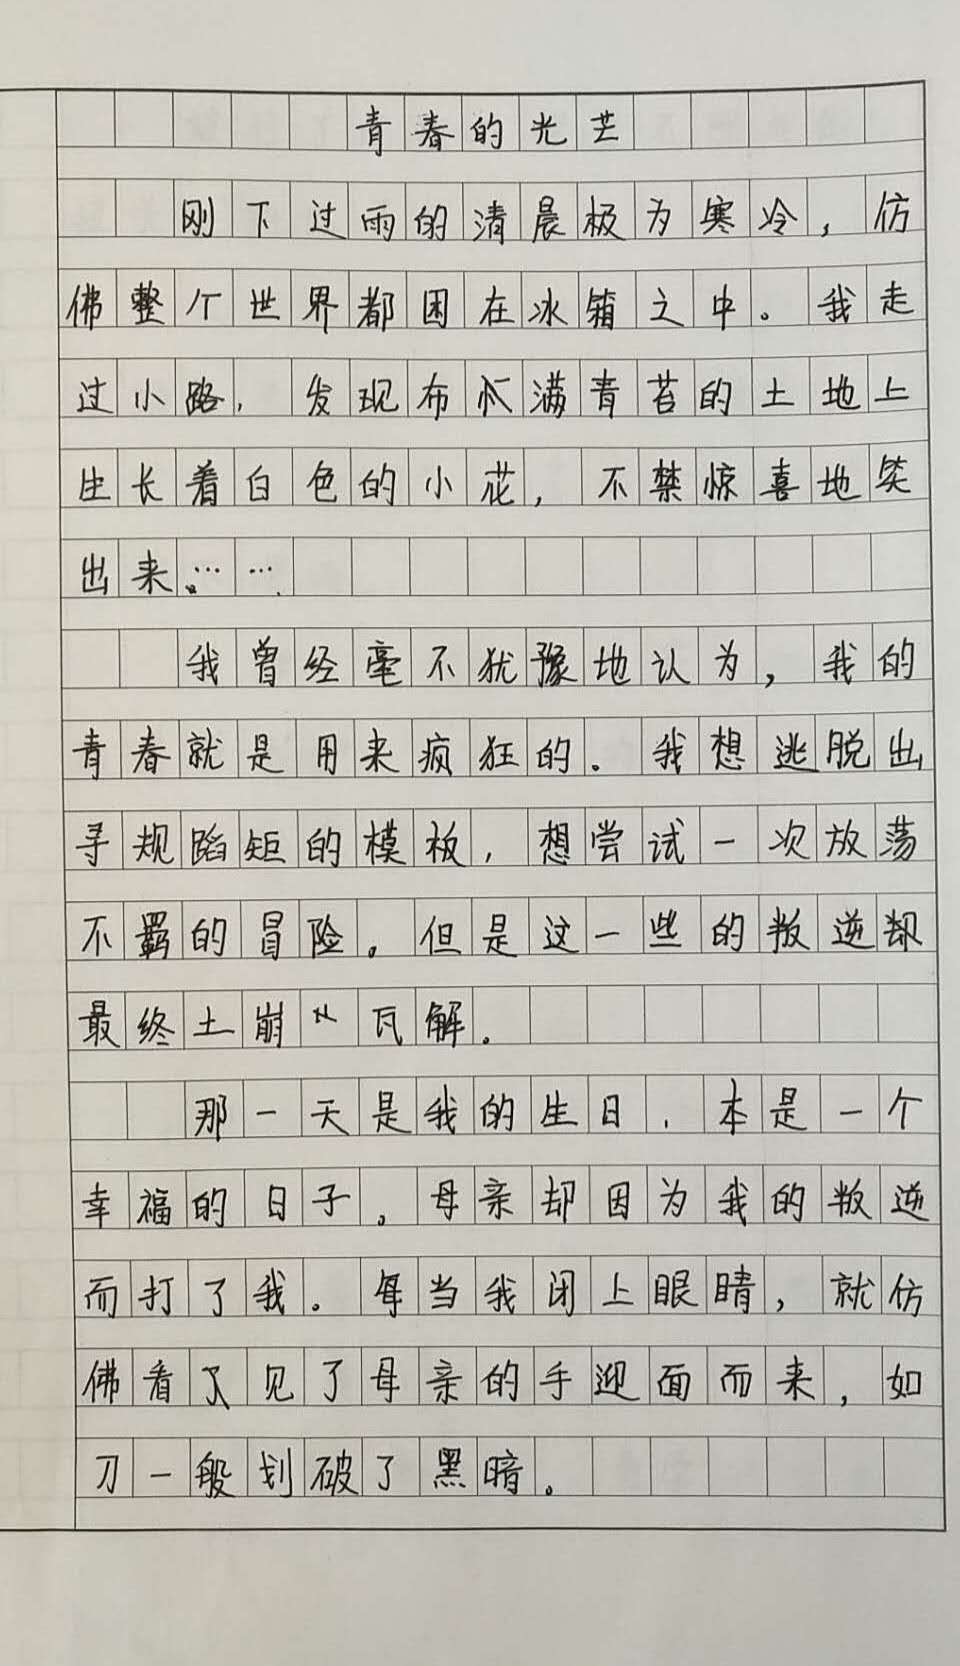 青春的光芒
刚下过雨的清晨极为寒冷，仿
佛整个世界都困在冰箱之中。我走
过小路，发现布满青苔的土地上
生长着白色的小花，不禁惊喜地笑
出来……
我曾经毫不犹豫地认为，我的
青春就是用来疯狂的。我想逃脱出
寻规蹈矩的模板，想尝试一次放荡
不羁的冒险。但是这一些的叛逆却
最终土崩瓦解。
那一天是我的生日，本是一个
幸福的日子。母亲却因为我的叛逆
而打了我。每当我闭上眼睛，就仿
佛看见了母亲的手迎面而来，如
刀一般划破了黑暗。